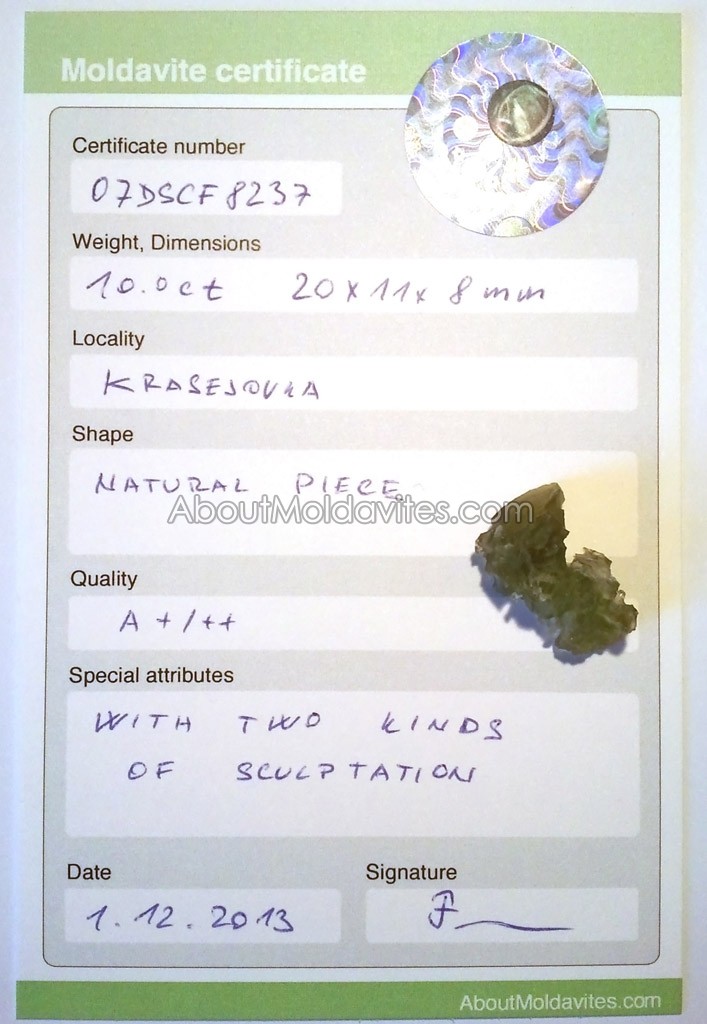 Moldavite certificate
Certificate number
07DSCF8237
Weight, Dimensions
10.0ct 20x11x8mm
Locality
KRASEJOVKA
Shape
NATURAL PIECE
AboutMoldavites.com
Quality
A+/++
Special attributes
WITH TWO KINDS
OF SCULPTATION
Date
1.12.2013
Signature
AboutMoldavites.com